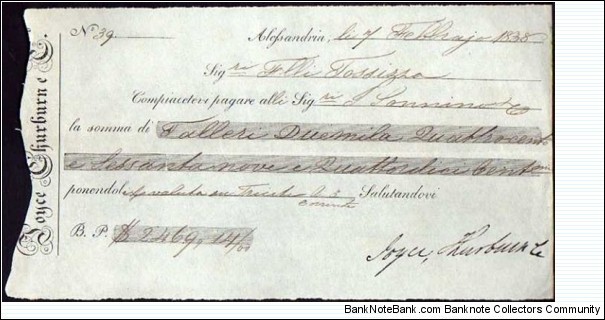 Joyce Thurburn & C.
No. 39 Alessandria, le 7 Febbrajo 1838
Sigri Flli Tossizza
Compiacetevi pagare alli Sigri J. Sonnino & Co
la somma di Talleri Duemila Quattrocento
e Sessanta nove e Quattordici Cent
ponendolo valuta su Trieste Salutandovi
corrente
B. P. $ 2469, 14/00
Joyce, Thurburn & Co
BankNoteBank.com - Banknote Collectors Community